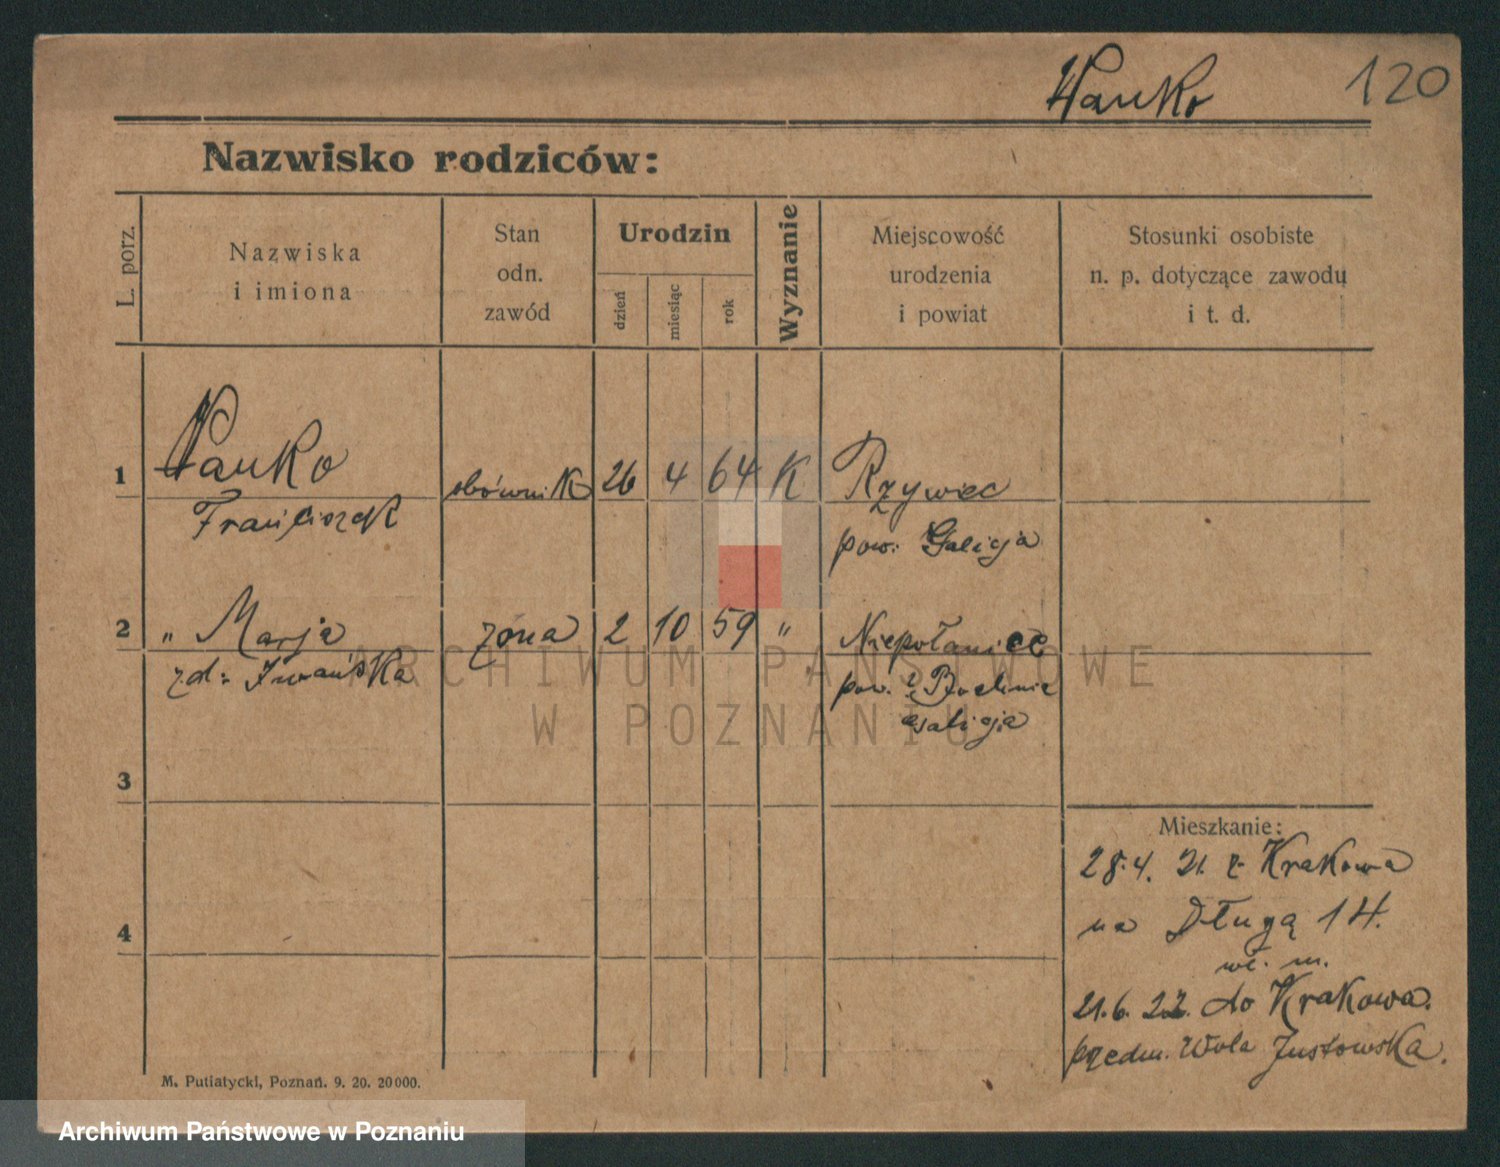 Wanko 120
Nazwisko rodziców:
L. porz.
Nazwiska
i imiona
Stan
odn.
zawód
Urodzin
dzień
miesiąc
rok
Wyznanie
Miejscowość
urodzenia
i powiat
Stosunki osobiste
n. p. dotyczące zawodu
i t. d.
1 Wanko 26 4 64 K Rzywiec
Franciszek pow. Galicja
2 " Marja żona 2 10 59 " Niepołamice
zd: Iwańska pow.
Galicja
ARCHIWUM PAŃSTWOWE
W POZNANIU
3
4
Mieszkanie:
28.4. 21. z Krakowa
na Długą 14.
21.6. 22. do Krakowa.
Wola Justowska.
M. Putiatycki, Poznań. 9. 20. 20000.
Archiwum Państwowe w Poznaniu